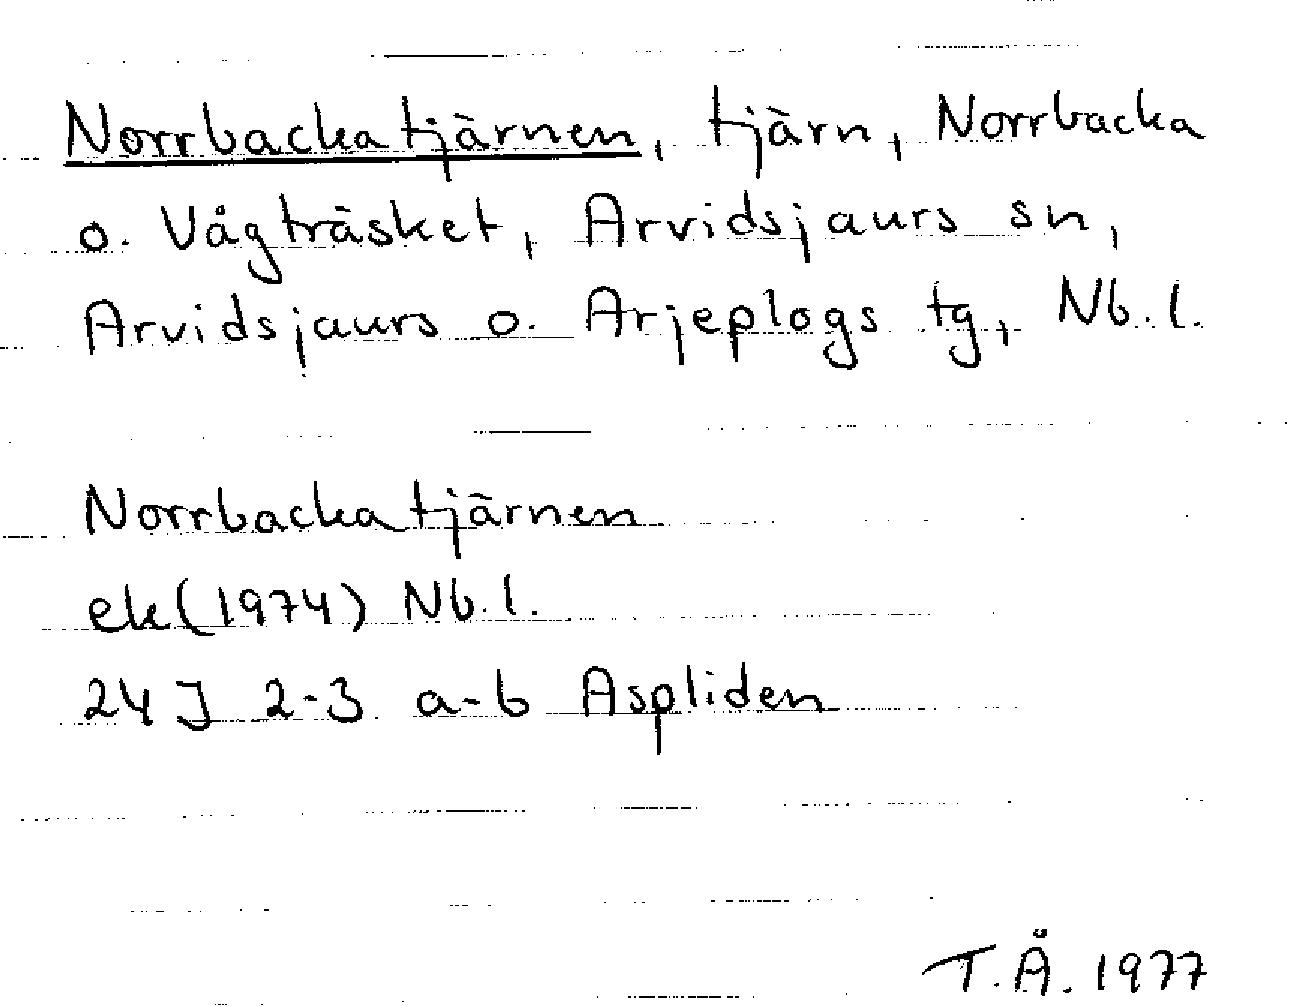 Norrbackatjärnen, tjärn, Norrbacka
o. Vågträsket, Arvidsjaurs sn,
Arvidsjaurs o. Arjeplogs tg, Nb.l.
Norrbackatjärnen
ek(1974) Nb.l.
24 J 2-3 a-b Aspliden
T.Å. 1977